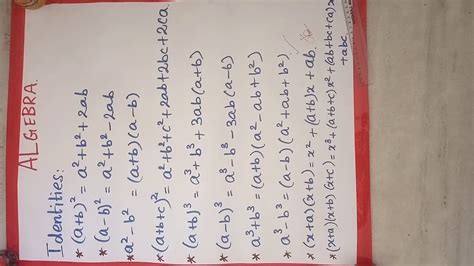 ALGEBRA
Identities:
* (a+b)² = a²+b²+2ab
* (a-b)² = a²+b²-2ab
* a²-b² = (a+b)(a-b)
* (a+b+c)² = a²+b²+c²+2ab+2bc+2ca
* (a+b)³ = a³+b³+3ab(a+b)
* (a-b)³ = a³-b³-3ab(a-b)
* a³+b³ = (a+b)(a²-ab+b²)
* a³-b³ = (a-b)(a²+ab+b²)
* (x+a)(x+b) = x²+(a+b)x+ab
* (x+a)(x+b)(x+c) = x³+(a+b+c)x²+(ab+bc+ca)x
+abc